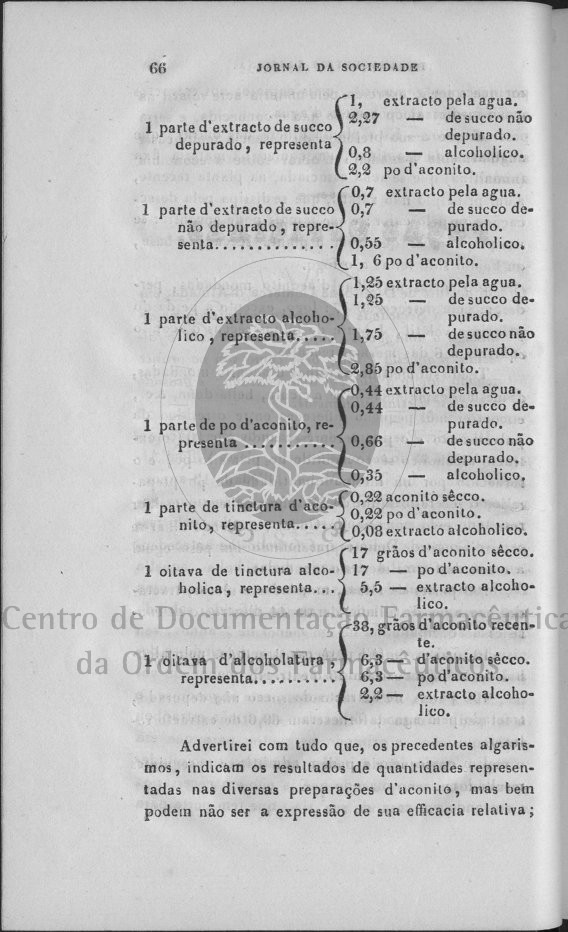 66 JORNAL DA SOCIEDADE
1 parte d'extracto de succo depurado, representa
1, extracto pela agua.
2,27 — de succo não
depurado.
0,8 — alcoholico.
2,2 po d'aconito.
1 parte d'extracto de succo
não depurado, repre-
senta..............
0,7 extracto pela agua.
0,7 — de succo de-
purado.
0,55 — alcoholico.
1, 6 po d'aconito.
1 parte d'extracto alcoho-
lico, representa.....
1,25 extracto pela agua.
1,25 — de succo de-
purado.
1,75 — de succo não
depurado.
2,85 po d'aconito.
1 parte de po d'aconito, re-
presenta ...........
0,44 extracto pela agua.
0,44 — de succo de-
purado.
0,66 — de succo não
depurado.
0,35 — alcoholico.
1 parte de tinctura d'aco-
nito, representa.....
0,22 aconito sêcco.
0,22 po d'aconito.
0,08 extracto alcoholico.
1 oitava de tinctura alco-
holica, representa...
17 grãos d'aconito sêcco.
17 — po d'aconito.
5,5 — extracto alcoho-
lico.
1 oitava d'alcoholatura,
representa..........
38, grãos d'aconito recen-
te.
6,3 — d'aconito sêcco.
6,3 — po d'aconito.
2,2 — extracto alcoho-
lico.
Centro de Documentação Farmacêutica
da Ordem dos Farmacêuticos
Advertirei com tudo que, os precedentes algaris-
mos, indicam os resultados de quantidades represen-
tadas nas diversas preparações d'aconito, mas bem
podem não ser a expressão de sua efficacia relativa;